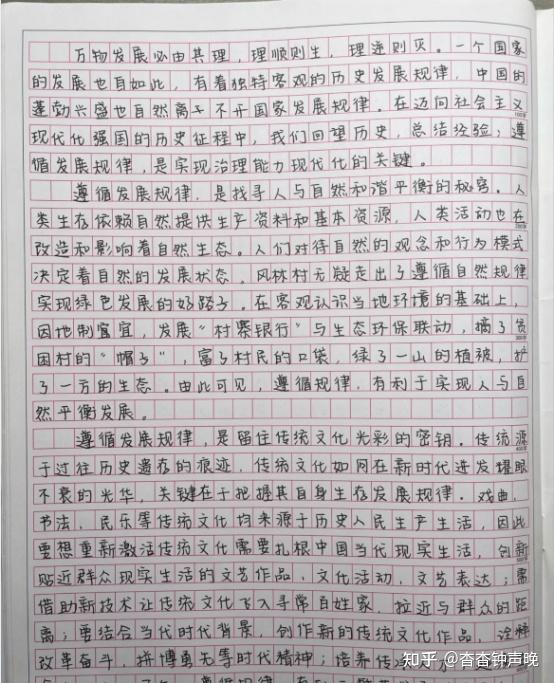 万物发展必由其理，理顺则生，理逆则灭。一个国家
的发展也自如此，有着独特客观的历史发展规律，中国的
蓬勃兴盛也自然离不开国家发展规律。在迈向社会主义
现代化强国的历史征程中，我们回望历史，总结经验；遵
循发展规律，是实现治理能力现代化的关键。
遵循发展规律，是找寻人与自然和谐平衡的秘密。人
类生存依赖自然提供生产资料和基本资源，人类活动也在
改造和影响着自然生态。人们对待自然的观念和行为模式
决定着自然的发展状态。风林村无疑走出了遵循自然规律
实现绿色发展的好路子。在客观认识当地环境的基础上，
因地制宜，发展“村寨银行”与生态环保联动，摘了贫
困村的“帽子”，富了村民的口袋，绿了一山的植被，扩
了一方的生态。由此可见，遵循规律，有利于实现人与自
然平衡发展。
遵循发展规律，是留住传统文化光彩的密钥。传统源
于过往历史遗存的痕迹，传统文化如何在新时代迸发耀眼
不衰的光华，关键在于把握其自身生存发展规律。戏曲、
书法、民乐等传统文化均来源于历史人民生产生活，因此
要想重新激活传统文化需要扎根中国当代现实生活，创新
贴近群众现实生活的文艺作品、文化活动、文艺表达；需
借助新技术让传统文化飞入寻常百姓家，拉近与群众的距
离；要结合当代时代背景，创作新的传统文化作品，诠释
改革奋斗、拼搏勇先等时代精神；培养传
知乎 @杳杳钟声晚